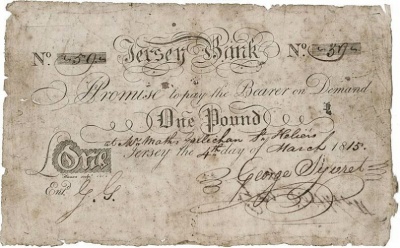 No. 519 Jersey Bank No. 519
I Promise to pay the Bearer on Demand
One Pound
at Mr. Mattw. Gallichan St. Heliers
Jersey the 4th day of March 1815.
George Syvret
One
Entd. G. G.